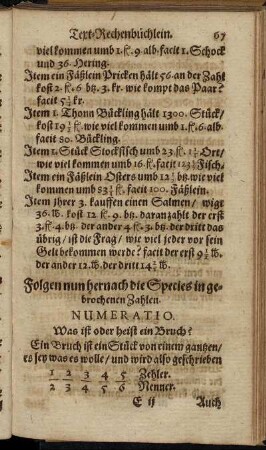 Text-Rechenbüchlein. 67
viel kommen umb 1. fl. 9. alb. facit 1. Schock
und 36. Hering.
Item ein Fäßlein Pricken hält 56. an der Zahl
kost 2. fl. 6 btz. 3. kr. wie kompt das Paar?
facit 5½ kr.
Item 1. Thonn Bückling hålt 1300. Stück/
kost 19½ fl. wie viel kommen umb 1. fl. 6. alb.
facit 80. Bückling.
Item 1. Stück Stockfisch umb 23. fl. Ort/
wie viel kommen umb 16. fl. facit Fisch.
Item ein Fäßlein Osters umb 12½ btz. wie viel
kommen umb 83⅓ fl. facit 100. Fäßlein.
Item jhrer 3. kauffen einen Salmen/ wigt
36. lb. kost 12. fl. 9. btz. daran zahlt der erst
3. fl. 4. btz. der ander 4 fl. 3. btz. der dritt das
übrig/ ist die Frag/ wie viel jeder vor sein
Gelt bekommen werde? facit der erst 9½ lb.
der ander 12. lb. der dritt 14½ lb.
Folgen nun hernach die Species in ge-
brochenen Zahlen.
NUMERATIO.
Was ist oder heist ein Bruch?
Ein Bruch ist ein Stück von einem gantzen/
es sey was es wolle/ und wird also geschrieben
1 2 3 4 5 Zehler.
2 3 4 5 6 Nenner.
E ij Auch